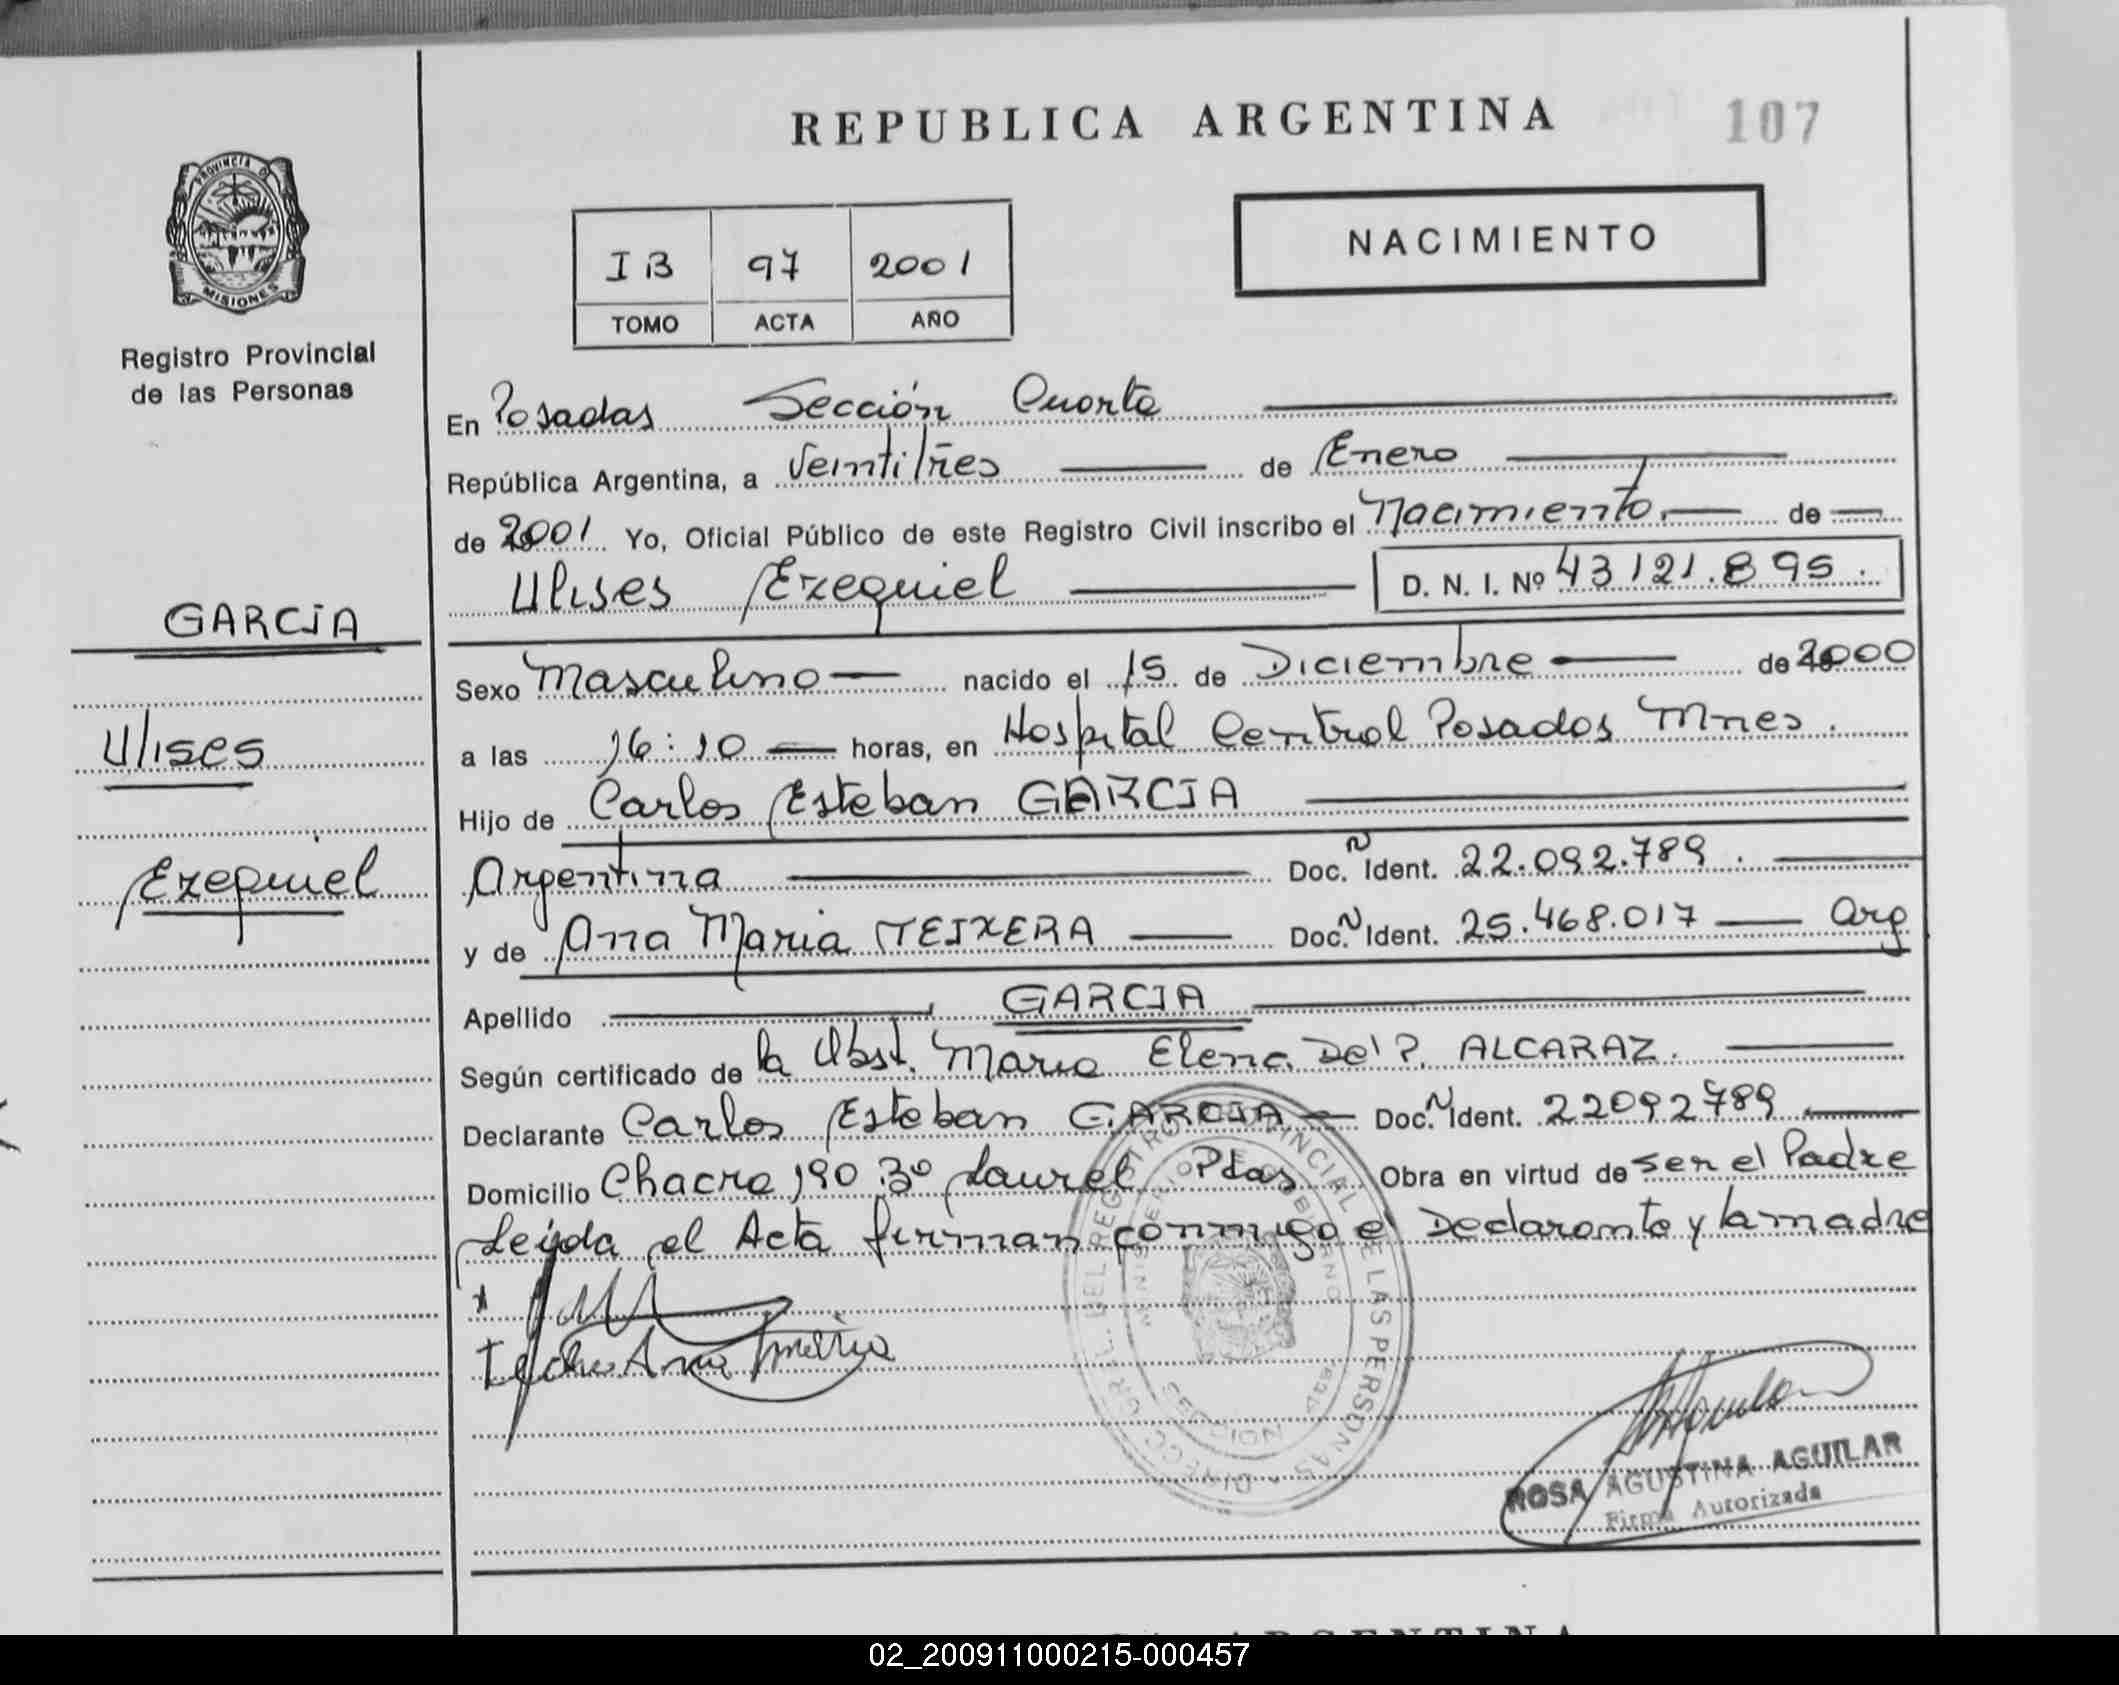 REPUBLICA ARGENTINA
107
PROVINCIA D
MISIONES
Registro Provincial
de las Personas
I B 97 2001
TOMO ACTA AÑO
NACIMIENTO
En Posadas Sección Cuarta
República Argentina, a Veintitres de Enero
de 2001 Yo, Oficial Público de este Registro Civil inscribo el Nacimiento de
Ulises Ezequiel D. N. I. Nº 43121.895.
GARCIA
Ulises
Ezequiel
Sexo Masculino nacido el 15 de Diciembre de 2000
a las 16:10 horas, en Hospital Central Posadas Mnes.
Hijo de Carlos Esteban GARCIA
Argentina Doc. N Ident. 22.092.789.
y de Ana Maria TEIXERA Doc. N Ident. 25.468.017 Arg
Apellido GARCIA
Según certificado de la Obst. Maria Elena Del P. ALCARAZ.
Declarante Carlos Esteban GARCIA Doc. N Ident. 22092789
Domicilio Chacra 190 Bº Laurel Pdas Obra en virtud de ser el Padre
Leida el Acta firman conmigo el Declarante y la madre
Ana
DIRECC. GRAL. DEL REGISTRO PROVINCIAL DE LAS PERSONAS
MINISTERIO DE GOBIERNO
SECCION
ROSA AGUSTINA AGUILAR
Firma Autorizada
ARGENTINA
02_200911000215-000457